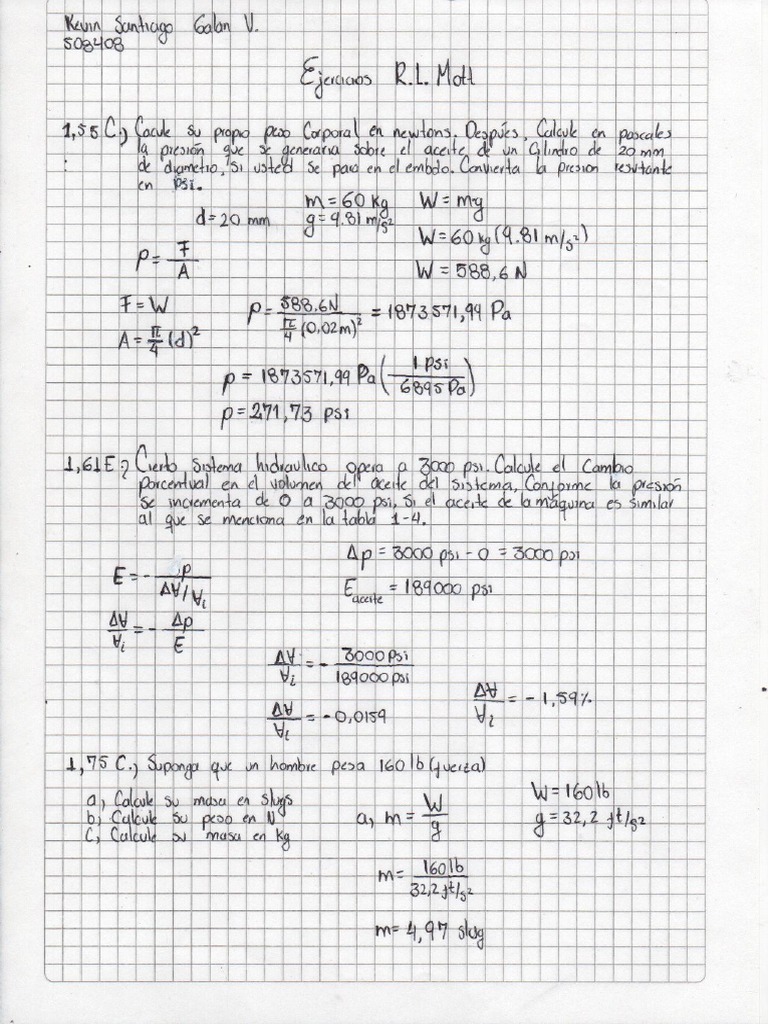 Kevin Santiago Galan V.
508408
Ejercicios R.L. Mott
1,55 C.) Cacule su propio peso Corporal en newtons. Después, Calcule en pascales
la presión que se generaria sobre el aceite de un Cilindro de 20 mm
de diametro, si usted se para en el embolo. Convierta la presion resultante
en psi.
m = 60 kg W = mg
d = 20 mm g = 9.81 m/s²
W = 60 kg (9.81 m/s²)
p = F/A
W = 588,6 N
F = W p = 588.6N / π/4 (0,02m)² = 1873571,99 Pa
A = π/4 (d)²
p = 1873571,99 Pa (1 psi / 6895 Pa)
p = 271,73 psi
1,61E) Cierto sistema hidraulico opera a 3000 psi. Calcule el Cambio
porcentual en el volumen del aceite del sistema, Conforme la presión
se incrementa de 0 a 3000 psi, Si el aceite de la máquina es similar
al que se menciona en la tabla 1-4.
Δp = 3000 psi - 0 = 3000 psi
E = - p / ΔV/Vi
E aceite = 189000 psi
ΔV/Vi = - Δp/E
ΔV/Vi = - 3000 psi / 189000 psi
ΔV/Vi = - 1,59%
ΔV/Vi = - 0,0159
1,75 C.) Suponga que un hombre pesa 160 lb (fuerza)
a) Calcule su masa en slugs
b) Calcule su peso en N
c) Calcule su masa en Kg
a) m = W/g
W = 160 lb
g = 32,2 ft/s²
m = 160 lb / 32,2 ft/s²
m = 4,97 slug